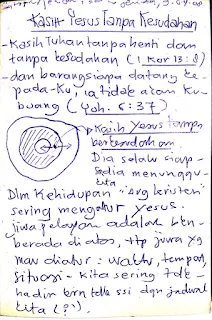 Kasih Yesus Tanpa Kesudahan
- Kasih Tuhan tanpa henti dan
tanpa kesudahan (1 Kor 13:8)
- dan barangsiapa datang ke
pada-Ku, ia tidak akan Ku
buang (Yoh. 6:37)
Kasih Yesus tanpa
Dia selalu siap
sedia menunggu
kita.
Dlm Kehidupan "org kristen"
sering mengatur Yesus.
Jiwa pelayan adalah
berada diatas, ttp jiwa yg
mau diatur = waktu, tempat,
situasi - kita sering tdk
hadir krn tdk ssi dgn jadwal
kita (?).